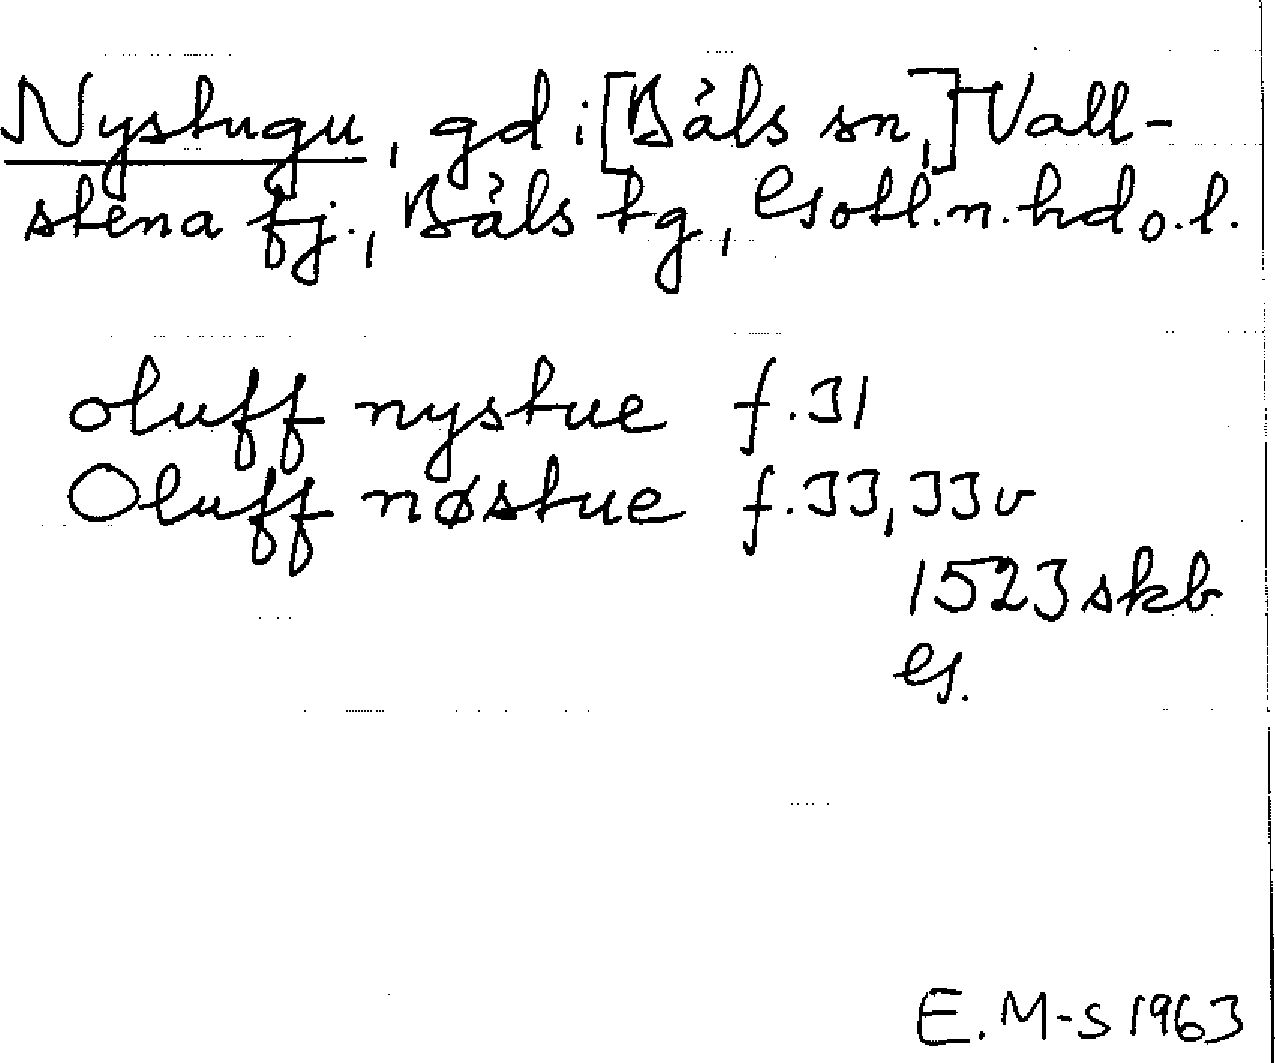 Nystugu, gd i [Båls sn,] Vall-
stena fj., Båls tg, Gotl.n.hd o.l.
oluff nystue f.31
Oluff nøstue f.33, 33v
1523 skb
G.
E. M-s 1963